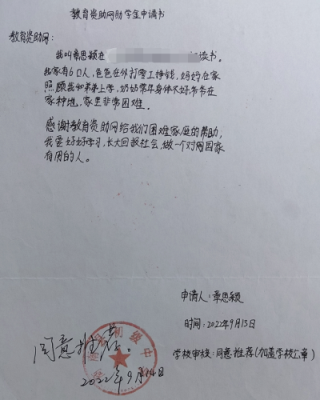 教育资助网助学金申请书
教育资助网:
我叫覃思颖在 读书。
我家有6口人,爸爸在外打零工挣钱,妈妈在家
照顾我和弟弟上学,奶奶常年身体不好爷爷在
家种地,家里非常困难。
感谢教育资助网给我们困难家庭的帮助,
我要好好学习,长大回报社会,做一个对国家
有用的人。
申请人:覃思颖
时间:2022年9月13日
学校审核:同意推荐(加盖学校公章)
同意推荐.
2022年9月14日
初级中